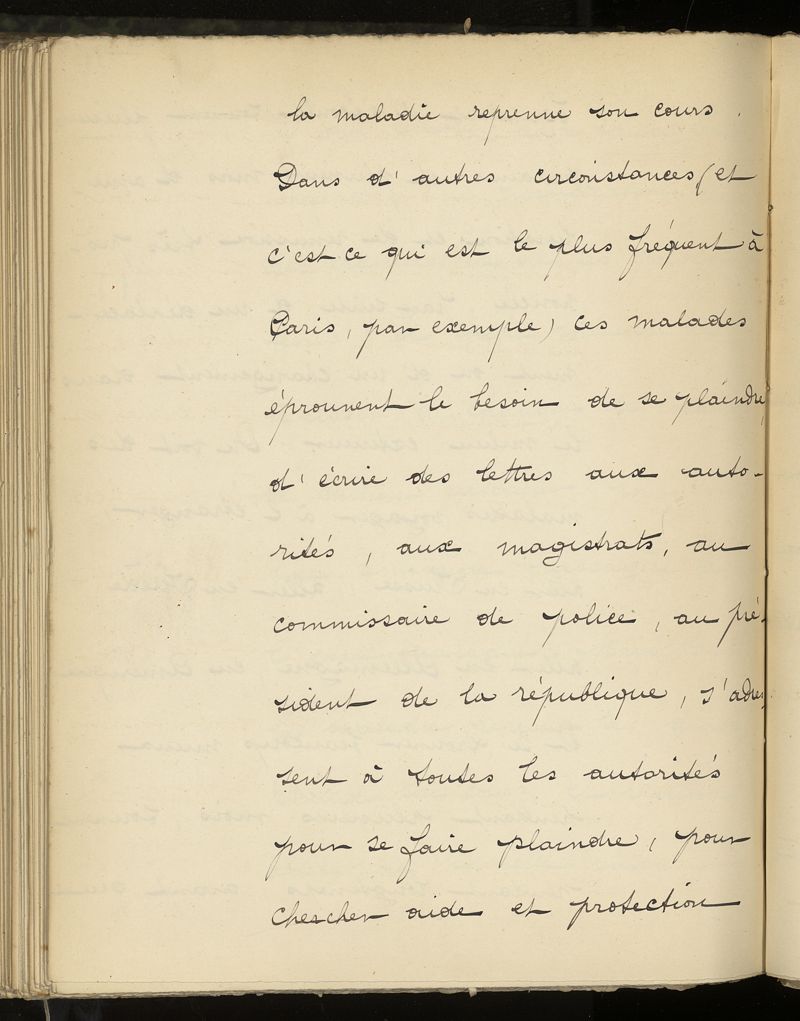 la maladie reprenne son cours.
Dans d'autres circonstances (et
c'est ce qui est le plus fréquent à
Paris, par exemple) ces malades
éprouvent le besoin de se plaindre,
d'écrire des lettres aux auto-
rités, aux magistrats, au
commissaire de police, au pré-
sident de la république, s'adres-
sent à toutes les autorités
pour se faire plaindre, pour
chercher aide et protection